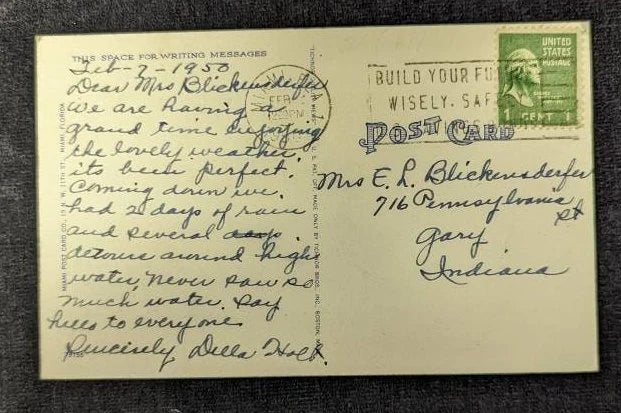 THIS SPACE FOR WRITING MESSAGES
Feb-7-1950
Dear Mrs Blickensderfer
We are having a
grand time enjoying
the lovely weather,
its been perfect.
Coming down we
had 2 days of rain
and several
detours around high
water, never saw so
much water. Say
hello to everyone
Sincerely Della Holt.
MIAMI POST CARD CO., N. W. 11TH ST., MIAMI, FLORIDA
FEB
BUILD YOUR FU
WISELY. SAF
UNITED
STATES
POSTAGE
1 CENT 1
POST CARD
Mrs E. L. Blickensderfer
716 Pennsylvania
St
Gary
Indiana